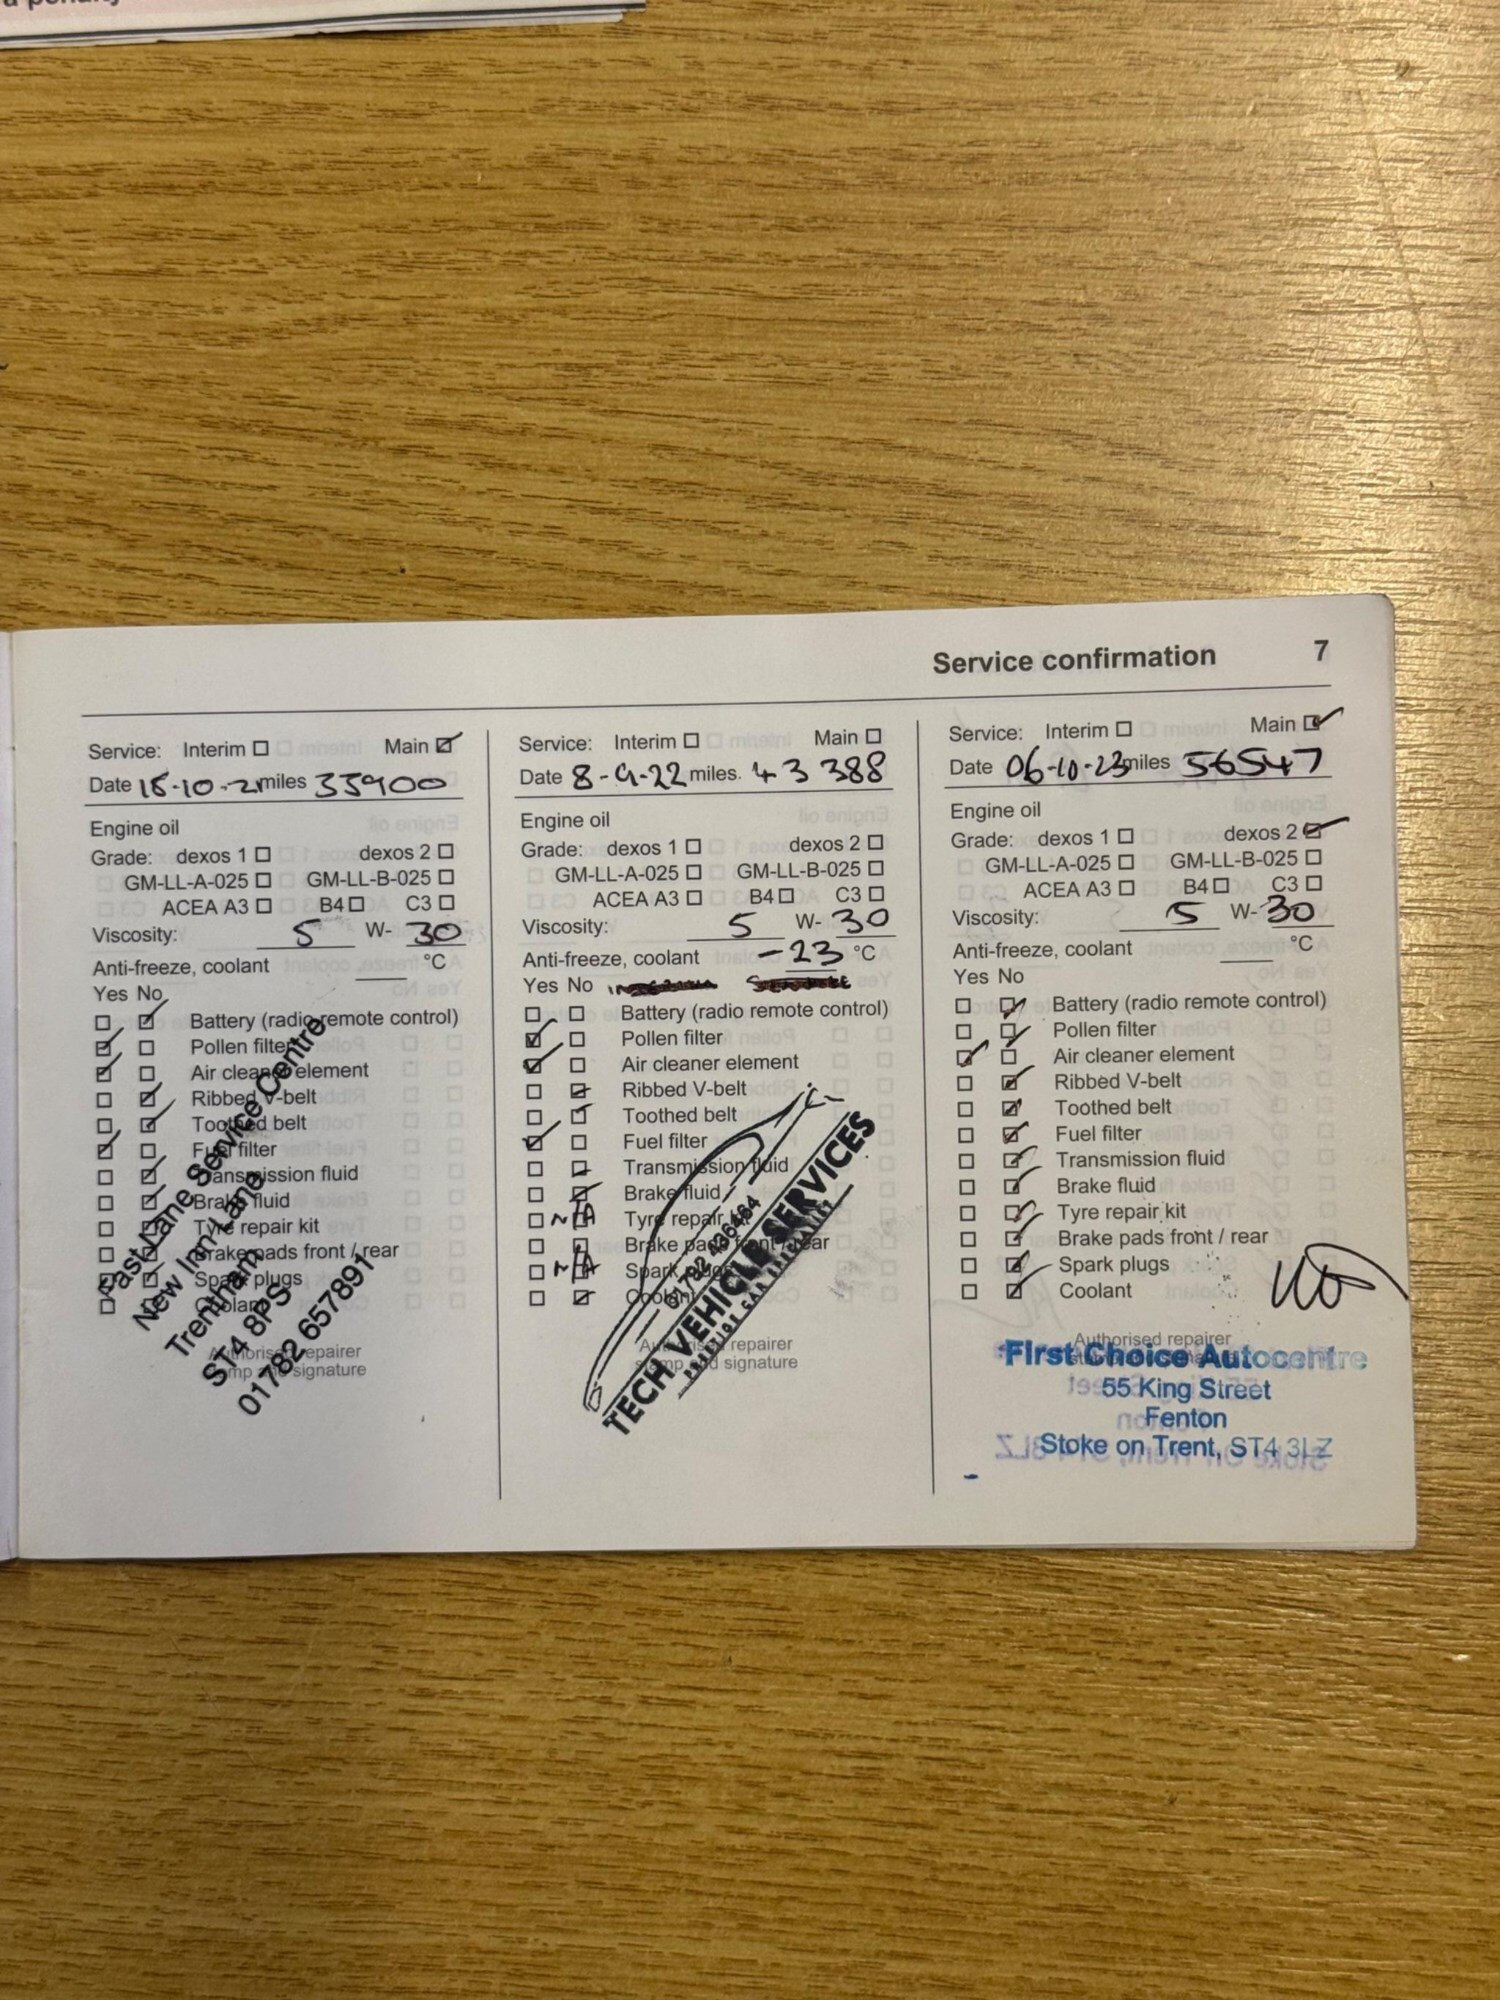 a penalty
Service confirmation 7
Service: Interim Main
Date 18-10-21 miles 33900
Engine oil
Grade: dexos 1 dexos 2
GM-LL-A-025 GM-LL-B-025
ACEA A3 B4 C3
Viscosity: 5 W- 30
Anti-freeze, coolant °C
Yes No
Battery (radio remote control)
Pollen filter
Air cleaner element
Ribbed V-belt
Toothed belt
Fuel filter
Transmission fluid
Brake fluid
Tyre repair kit
Brake pads front / rear
Spark plugs
Coolant
Authorised repairer
stamp and signature
Fast Lane Service Centre
New Inn Lane
Trentham
ST4 8PS
01782 657891
Service: Interim Main
Date 8-9-22 miles. 43 388
Engine oil
Grade: dexos 1 dexos 2
GM-LL-A-025 GM-LL-B-025
ACEA A3 B4 C3
Viscosity: 5 W- 30
Anti-freeze, coolant -23 °C
Yes No
Battery (radio remote control)
Pollen filter
Air cleaner element
Ribbed V-belt
Toothed belt
Fuel filter
Transmission fluid
Brake fluid
N/A Tyre repair kit
Brake pads front / rear
N/A Spark plugs
Coolant
Authorised repairer
stamp and signature
01782 436464
TECH VEHICLE SERVICES
PRESTIGE CAR SPECIALIST
Service: Interim Main
Date 06-10-23 miles 56547
Engine oil
Grade: dexos 1 dexos 2
GM-LL-A-025 GM-LL-B-025
ACEA A3 B4 C3
Viscosity: 5 W- 30
Anti-freeze, coolant °C
Yes No
Battery (radio remote control)
Pollen filter
Air cleaner element
Ribbed V-belt
Toothed belt
Fuel filter
Transmission fluid
Brake fluid
Tyre repair kit
Brake pads front / rear
Spark plugs
Coolant
Authorised repairer
First Choice Autocentre
55 King Street
Fenton
Stoke on Trent, ST4 3LZ